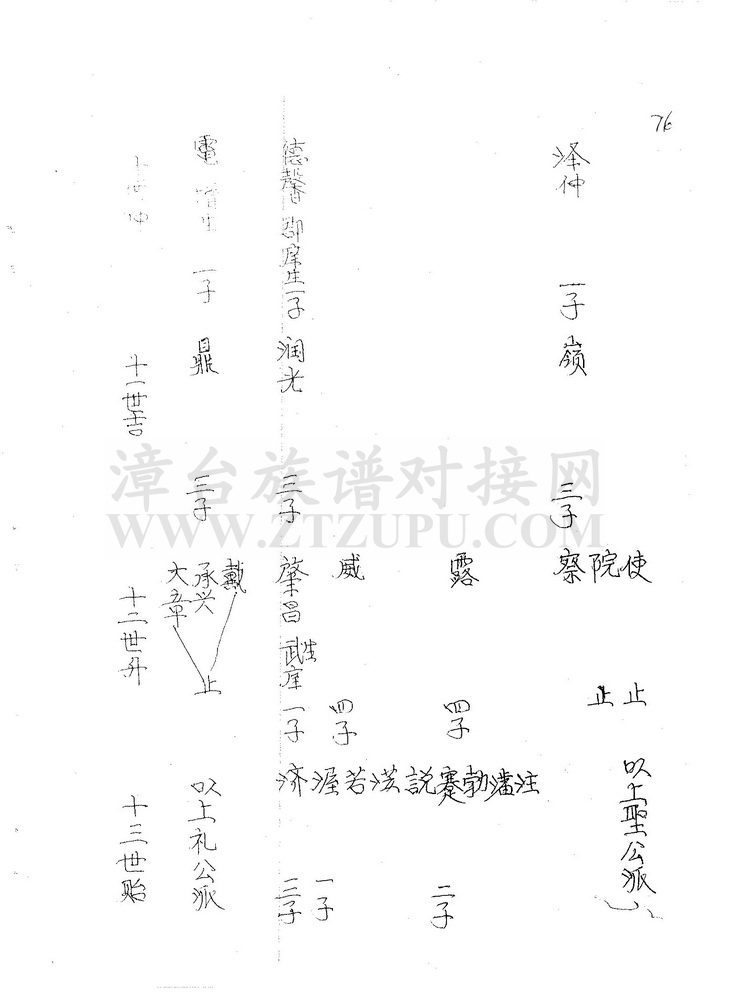 76
泽仲 一子
嶺 三子
使 止
院 止
察
以上聖公派
露 四子
注
潘
勃
蹇 二子
威 四子
説
洪
若
渥 一子
德馨 郡庠生 一子
润光 三子
肇昌 武庠生 一子
济 三子
電 一子
鼎 三子
戴
承兴
大章
止
以上礼公派
十一世吉
十二世升
十三世贻
漳台族谱对接网
WWW.ZTZUPU.COM